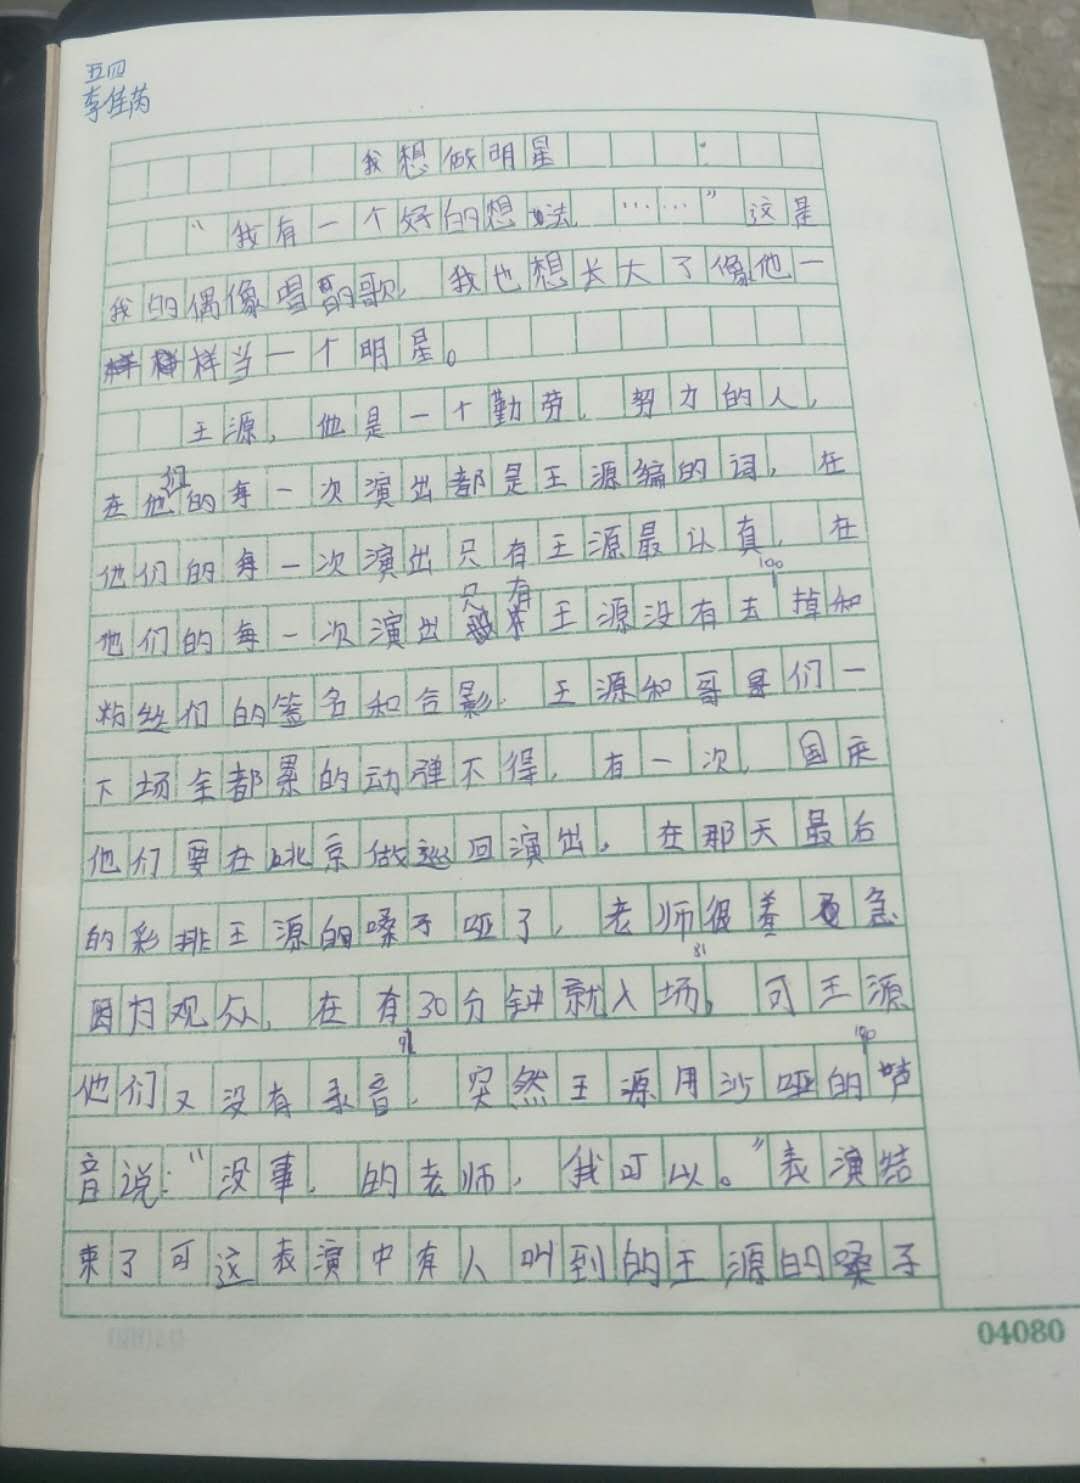 五四
李佳芮
我想做明星
“我有一个好的想法……”这是
我的偶像唱的歌,我也想长大了像他一
样当一个明星。
王源,他是一个勤劳,努力的人,
在他们的每一次演出都是王源编的词,在
他们的每一次演出只有王源最认真,在
100
他们的每一次演出只有王源没有去掉和
粉丝们的签名和合影,王源和哥哥们一
下场全都累的动弹不得,有一次,国庆
他们要在北京做巡回演出,在那天最后
的彩排王源的嗓子哑了,老师很着急
因为观众,在有30分钟就入场,可王源
他们又没有录音,突然王源用沙哑的声
音说:“没事,的老师,我可以。”表演结
束了可这表演中有人叫到的王源的嗓子
04080